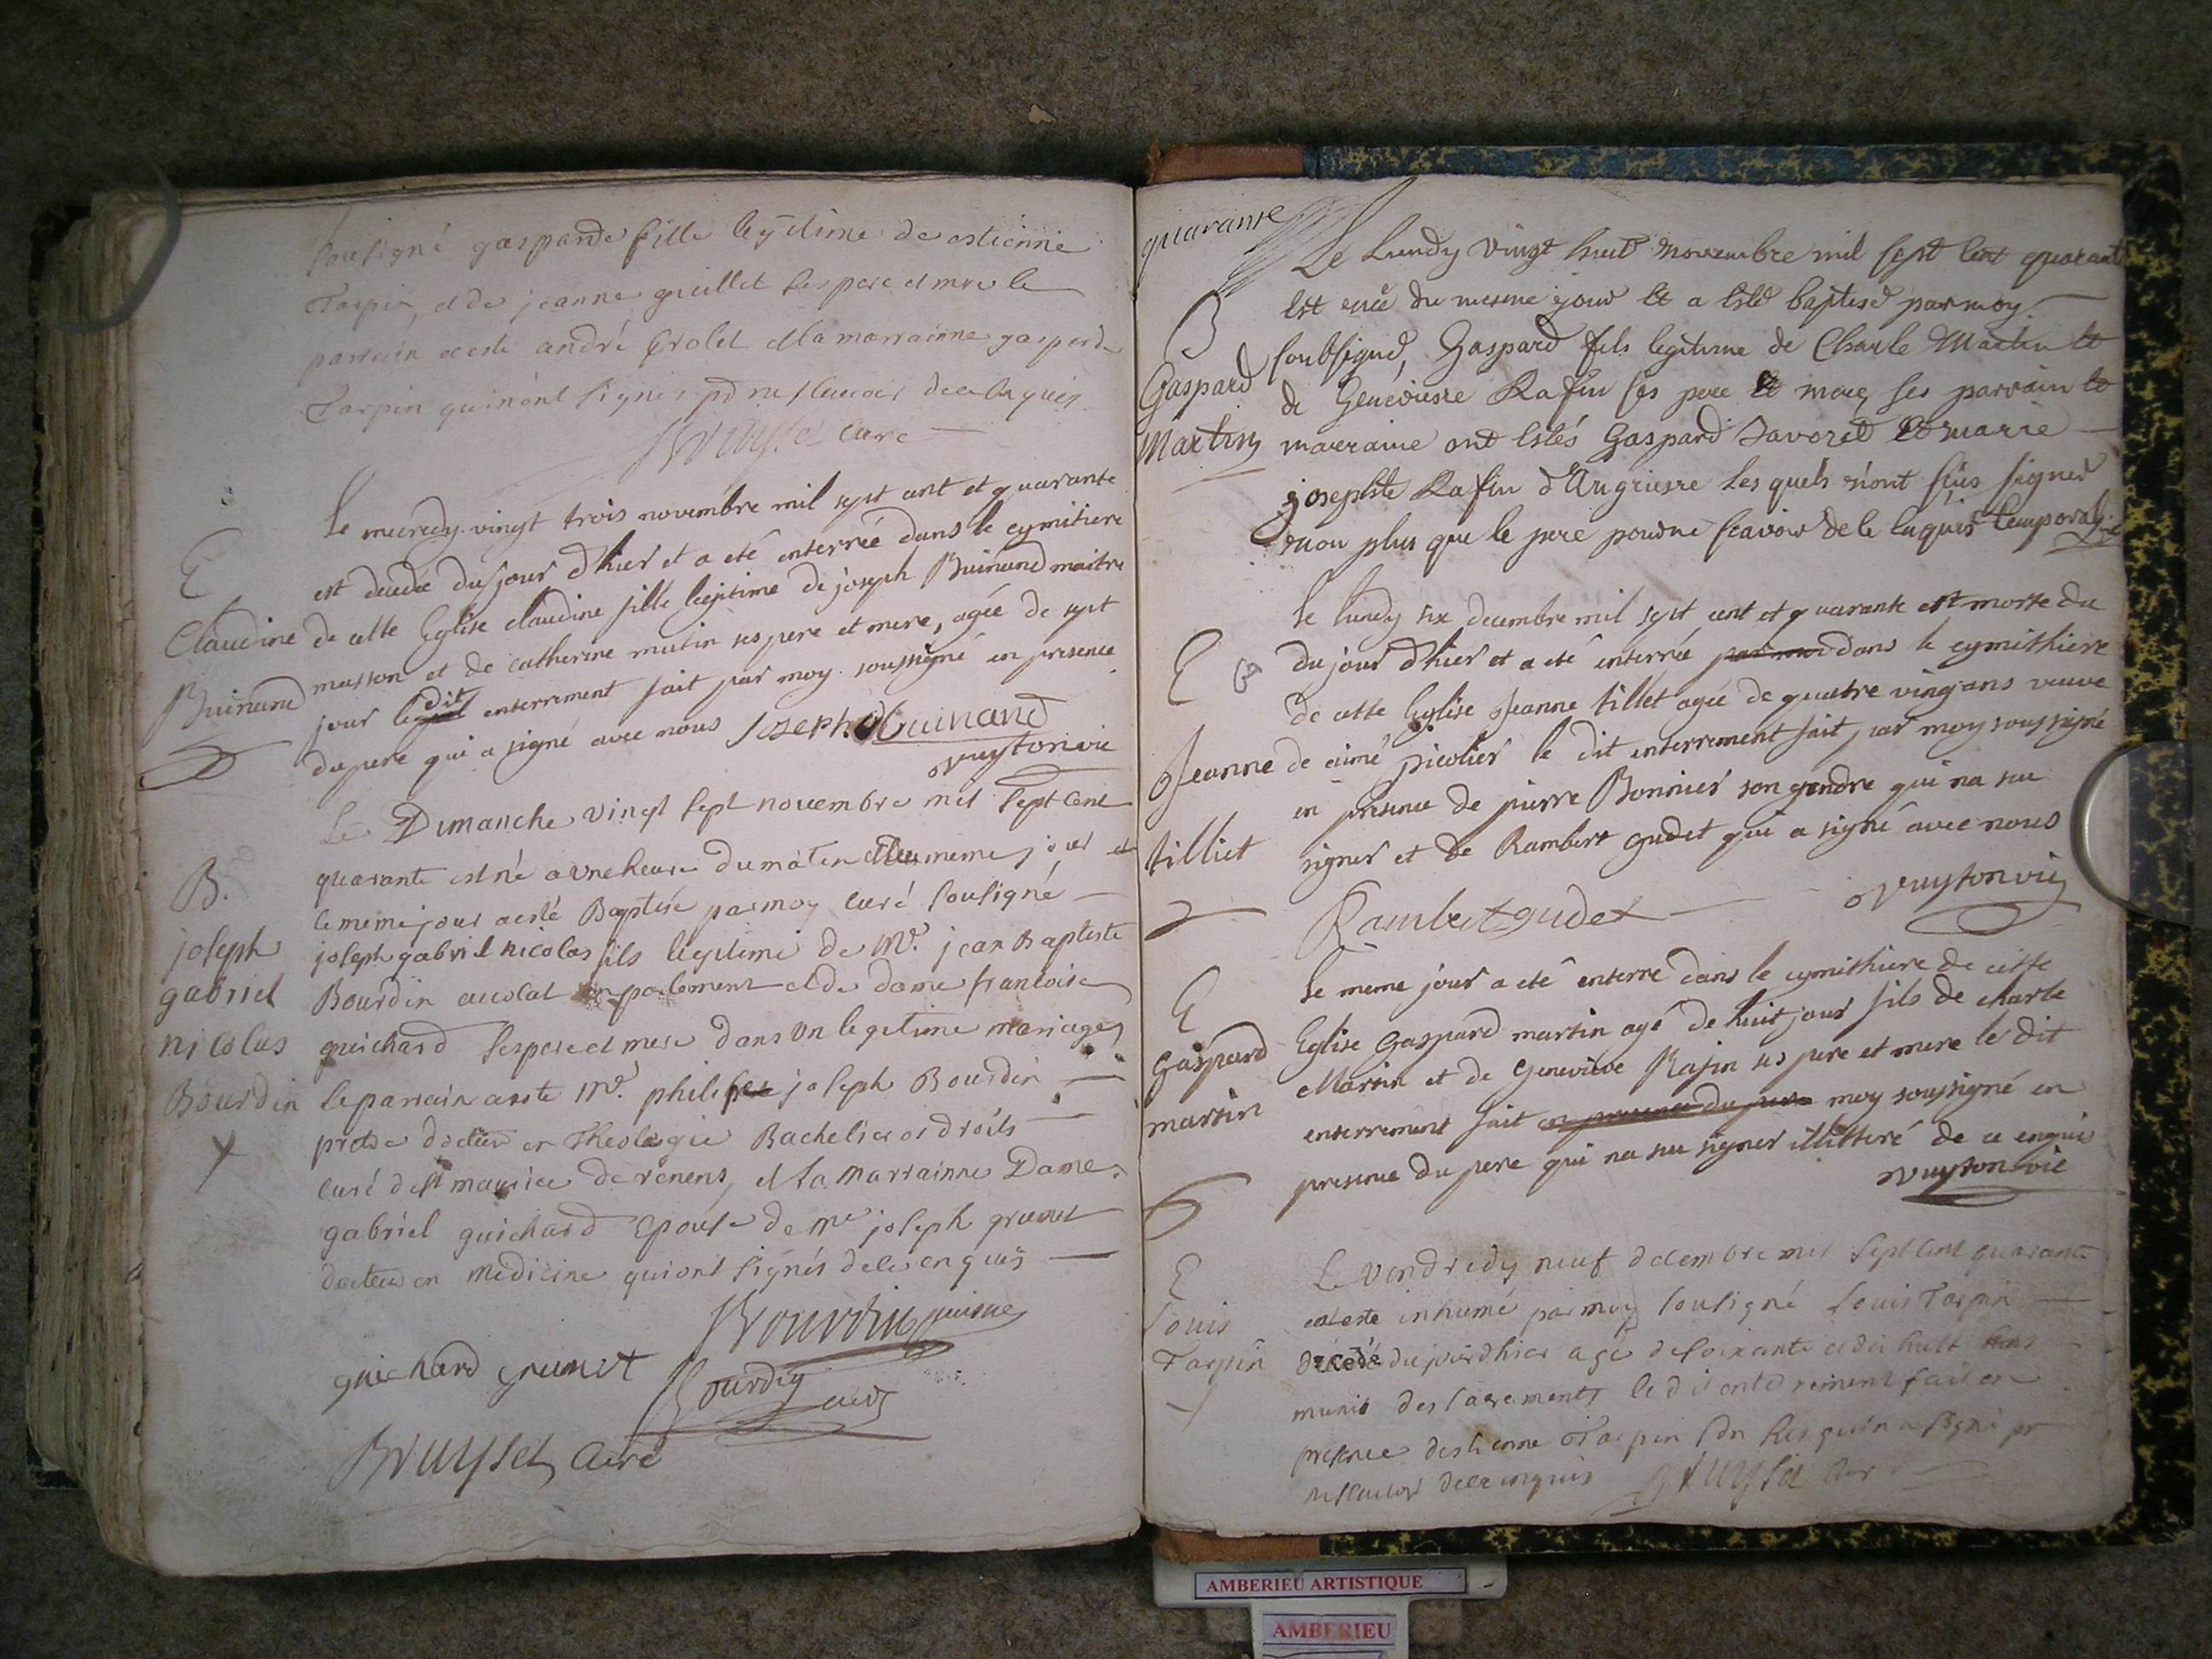 soussigné gasparde fille legitime de estienne
Tarpin, et de jeanne guillet ses pere et mere le
parrain a esté andré Grolet et la marrainne gasparde
Tarpin qui n'ont signes pd ne scavoir de ce enquis
Bruyset curé
E
Claudine
Buinand
le mecredy vingt trois novembre mil sept cent et quarante
est decedée du jour d'hier et a eté enterreé dans le cymitiere
de cette Eglise claudine fille legitime de joseph Buinand maitre
masson et de catherine mutin ses pere et mere, ageé de sept
jour le dit enterrement fait par moy soussigné en presence
du pere qui a signé avec nous Joseph Buinand
vuyton vic
B.
joseph
gabriel
nicolas
Bourdin
Le Dimanche vingt sept novembre mil sept cent
quarante est né a une heure du matin du meme jour et
le meme jour a esté Baptisé par moy curé sousigné
joseph gabriel nicolas fils legitime de Mr. jean Baptiste
Bourdin avocat en parlement et de dame francoise
guichard ses pere et mere dans un legitime mariage
le parrain a este Mr. philipe joseph Bourdin
pretre docteur en Theologie Bachelier es droits
curé de st maurice de remens, et la marrainne Dame
gabriel guichard epouse de Mr joseph grumet
docteur en medicine qui ont signés de ce enquis
Bourdin puisne
guichard grumet Bourdin
Bruyset curé
quarante
B
Gaspard
Martin
Le Lundy vingt huit novembre mil sept cent quarant
Est née du mesme jour Et a Esté baptisé par moy
soubsigné, Gaspard fils legitime de Charle Martin Et
de Genevieve Rafin ses pere Et mere, ses parrain Et
marraine ont Estés Gaspard Savoret Et marie
josephte Rafin d'Angrieire Les quels n'ont sçus signer
non plus que le pere pour ne scavoir de le Enquis temporal
E
Jeanne
tilliet
le lundy six decembre mil sept cent et quarante est morte du
du jour d'hier et a eté enterreé par moi dans le cymithiere
de cette Eglise Jeanne tillet ageé de quatre vingt ans veuve
de aimé picolier le dit enterrement fait par moy soussigné
en presence de pierre Bonnier son gendre qui na seu
signer et de Rambert gudet qui a signé avec nous
Rambert gudet
vuyton vic
E
Gaspard
martin
le meme jour a eté enterré dans le cymithiere de cette
Eglise Gaspard martin agé de huit jour fils de charle
Martin et de Genevieve Rafin ses pere et mere le dit
enterrement fait en presence du pere moy soussigné en
presence du pere qui na seu signer illitteré de ce enquis
vuyton vic
E
Louis
Tarpin
Le Vendredy neuf decembre mil sept cent quarante
a esté inhumé par moy sousigné Louis Tarpin
decedé du jour d'hier agé de soixante et dix huit ans
munis des sacrements le dit enterrement fait en
presence d'estienne Tarpin son fils qui n'a signé pr
ne scavoir de ce enquis Bruyset curé
AMBERIEU ARTISTIQUE
AMBERIEU